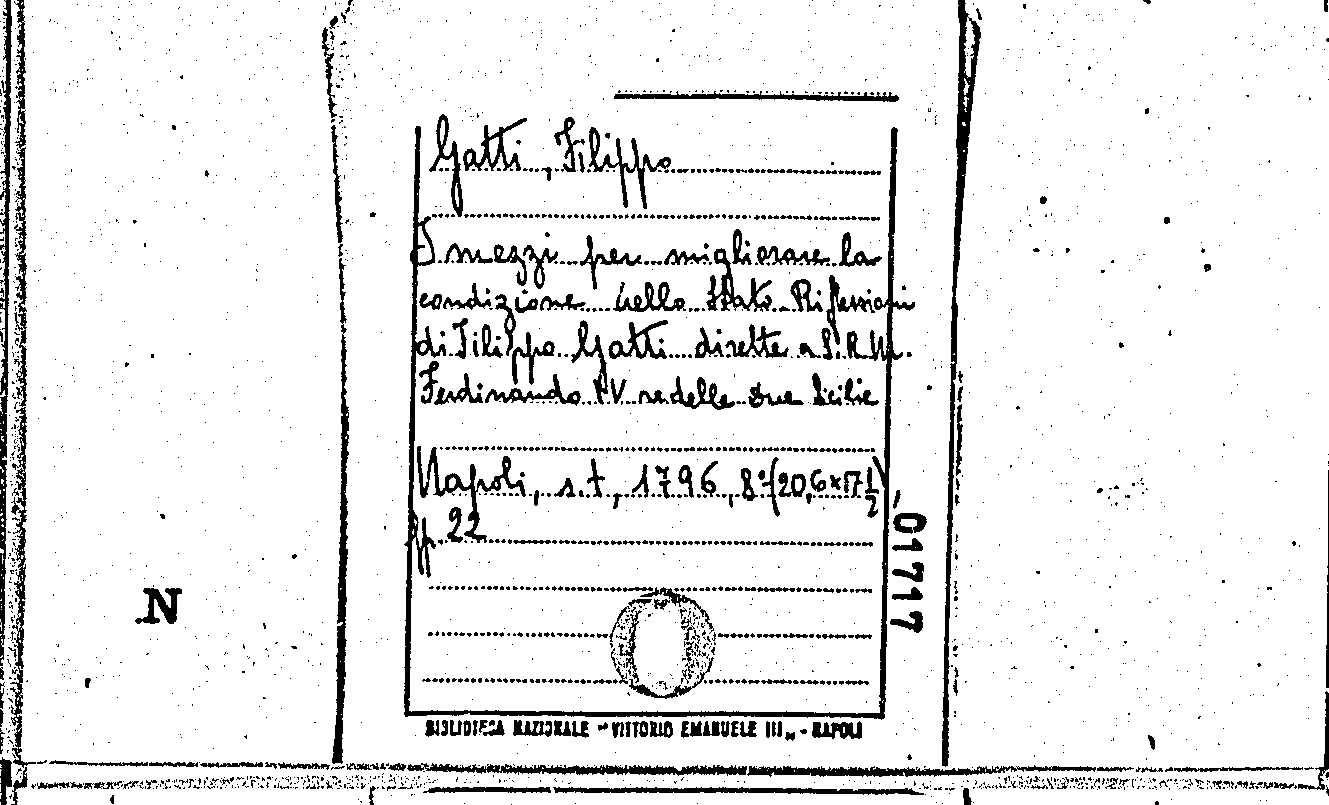 Gatti, Filippo
I mezzi per migliorare la
condizione dello Stato Riflessioni
di Filippo Gatti dirette a S. R. M.
Ferdinando IV re delle due Sicilie
Napoli, s.t, 1796, 8º (20,6x17 1/2)
pp. 22
01717
N
BIBLIOTECA NAZIONALE "VITTORIO EMANUELE III" - NAPOLI